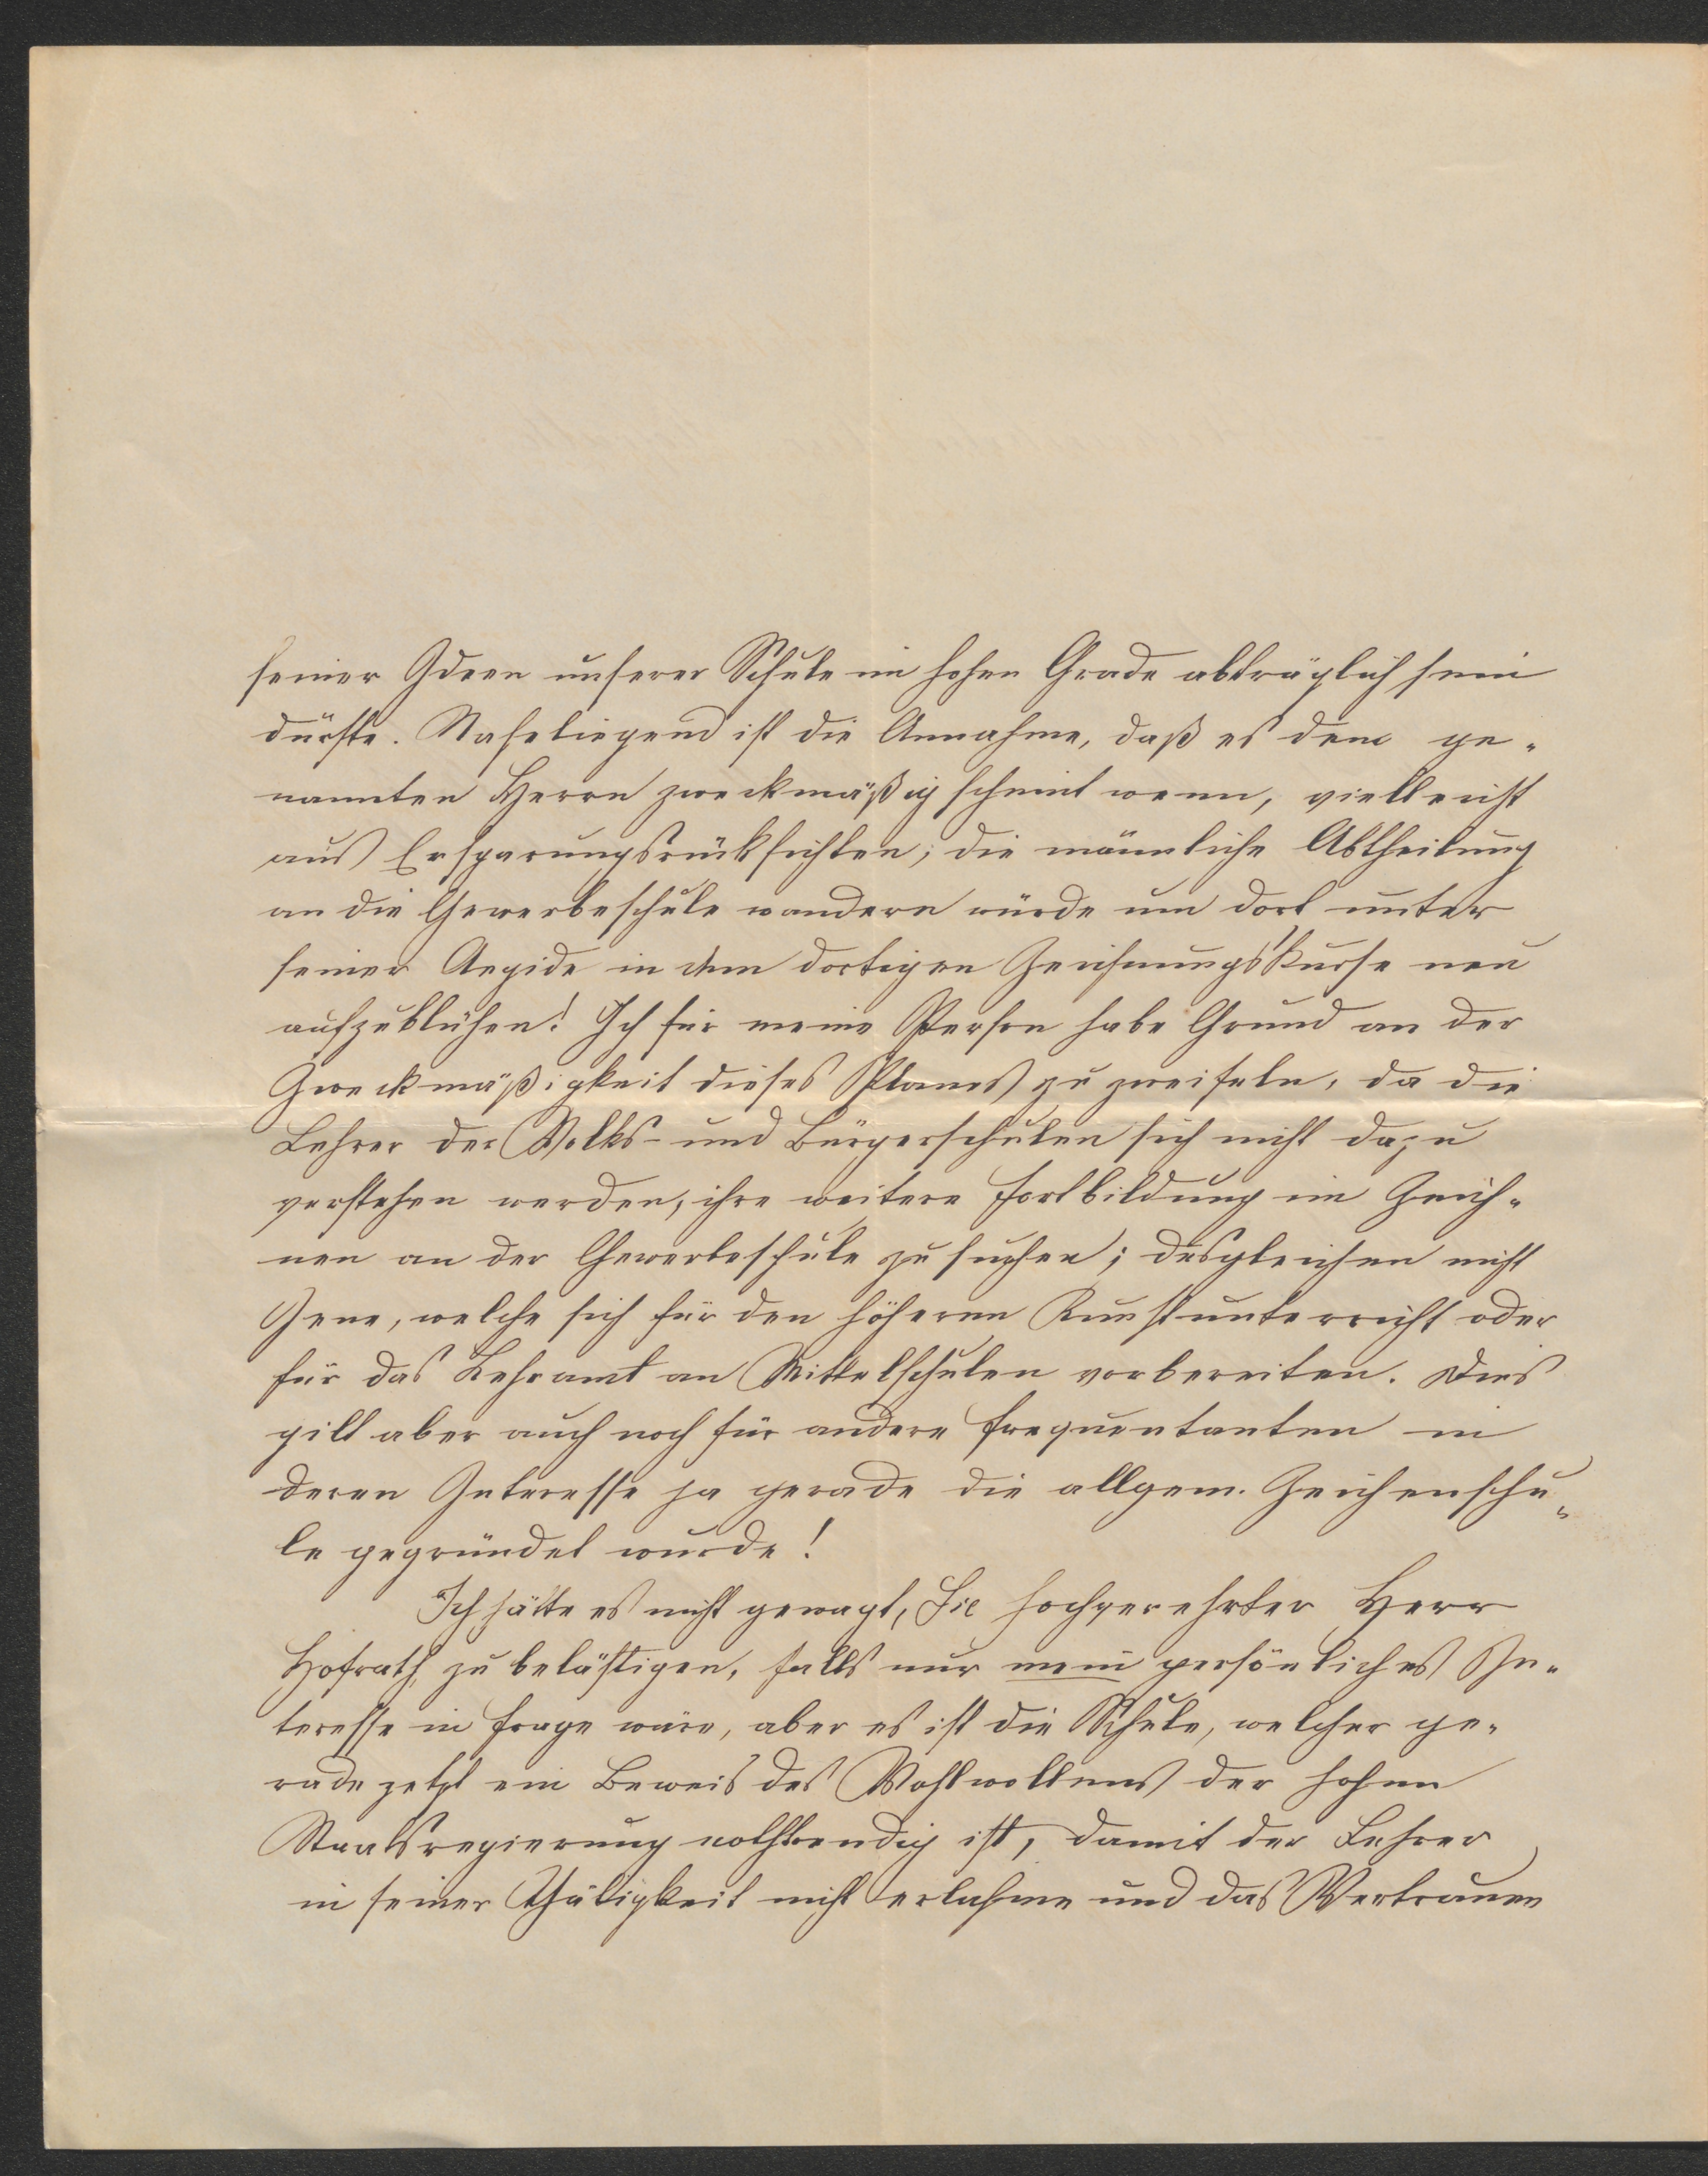 seiner Ideen unserer Schule im hohen Grade abträglich sein
dürfte. Naheliegend ist die Annahme, daß es dem ge-
nannten Herrn zweckmäßig scheint wenn, vielleicht
aus Ersparungsrücksichten, die männliche Abtheilung
an die Gewerbeschule wandern würde um dort unter
seiner Aegide in dem dortigen Zeichnungskurse neu
aufzublühen! Ich für meine Person habe Grund an der
Zweckmäßigkeit dieses Planes zu zweifeln, da die
Lehrer der Volks- und Bürgerschulen sich nicht dazu
verstehen werden, ihre weitere Fortbildung im Zeich-
nen an der Gewerbeschule zu suchen; desgleichen nicht
Jene, welche sich für den höheren Kunstunterricht oder
für das Lehramt an Mittelschulen vorbereiten. Dies
gilt aber auch noch für andere Frequentanten in
deren Interesse ja gerade die allgem. Zeichenschu-
le gegründet wurde!
Ich hätte es nicht gewagt, Sie hochverehrter Herr
Hofrath, zu belästigen, falls nur mein persönliches In-
teresse in Frage wäre, aber es ist die Schule, welcher ge-
rade jetzt ein Beweis des Wohlwollens der hohen
Staatsregierung nothwendig ist, damit der Lehrer
in seiner Thätigkeit nicht erlahme und das Vertrauen